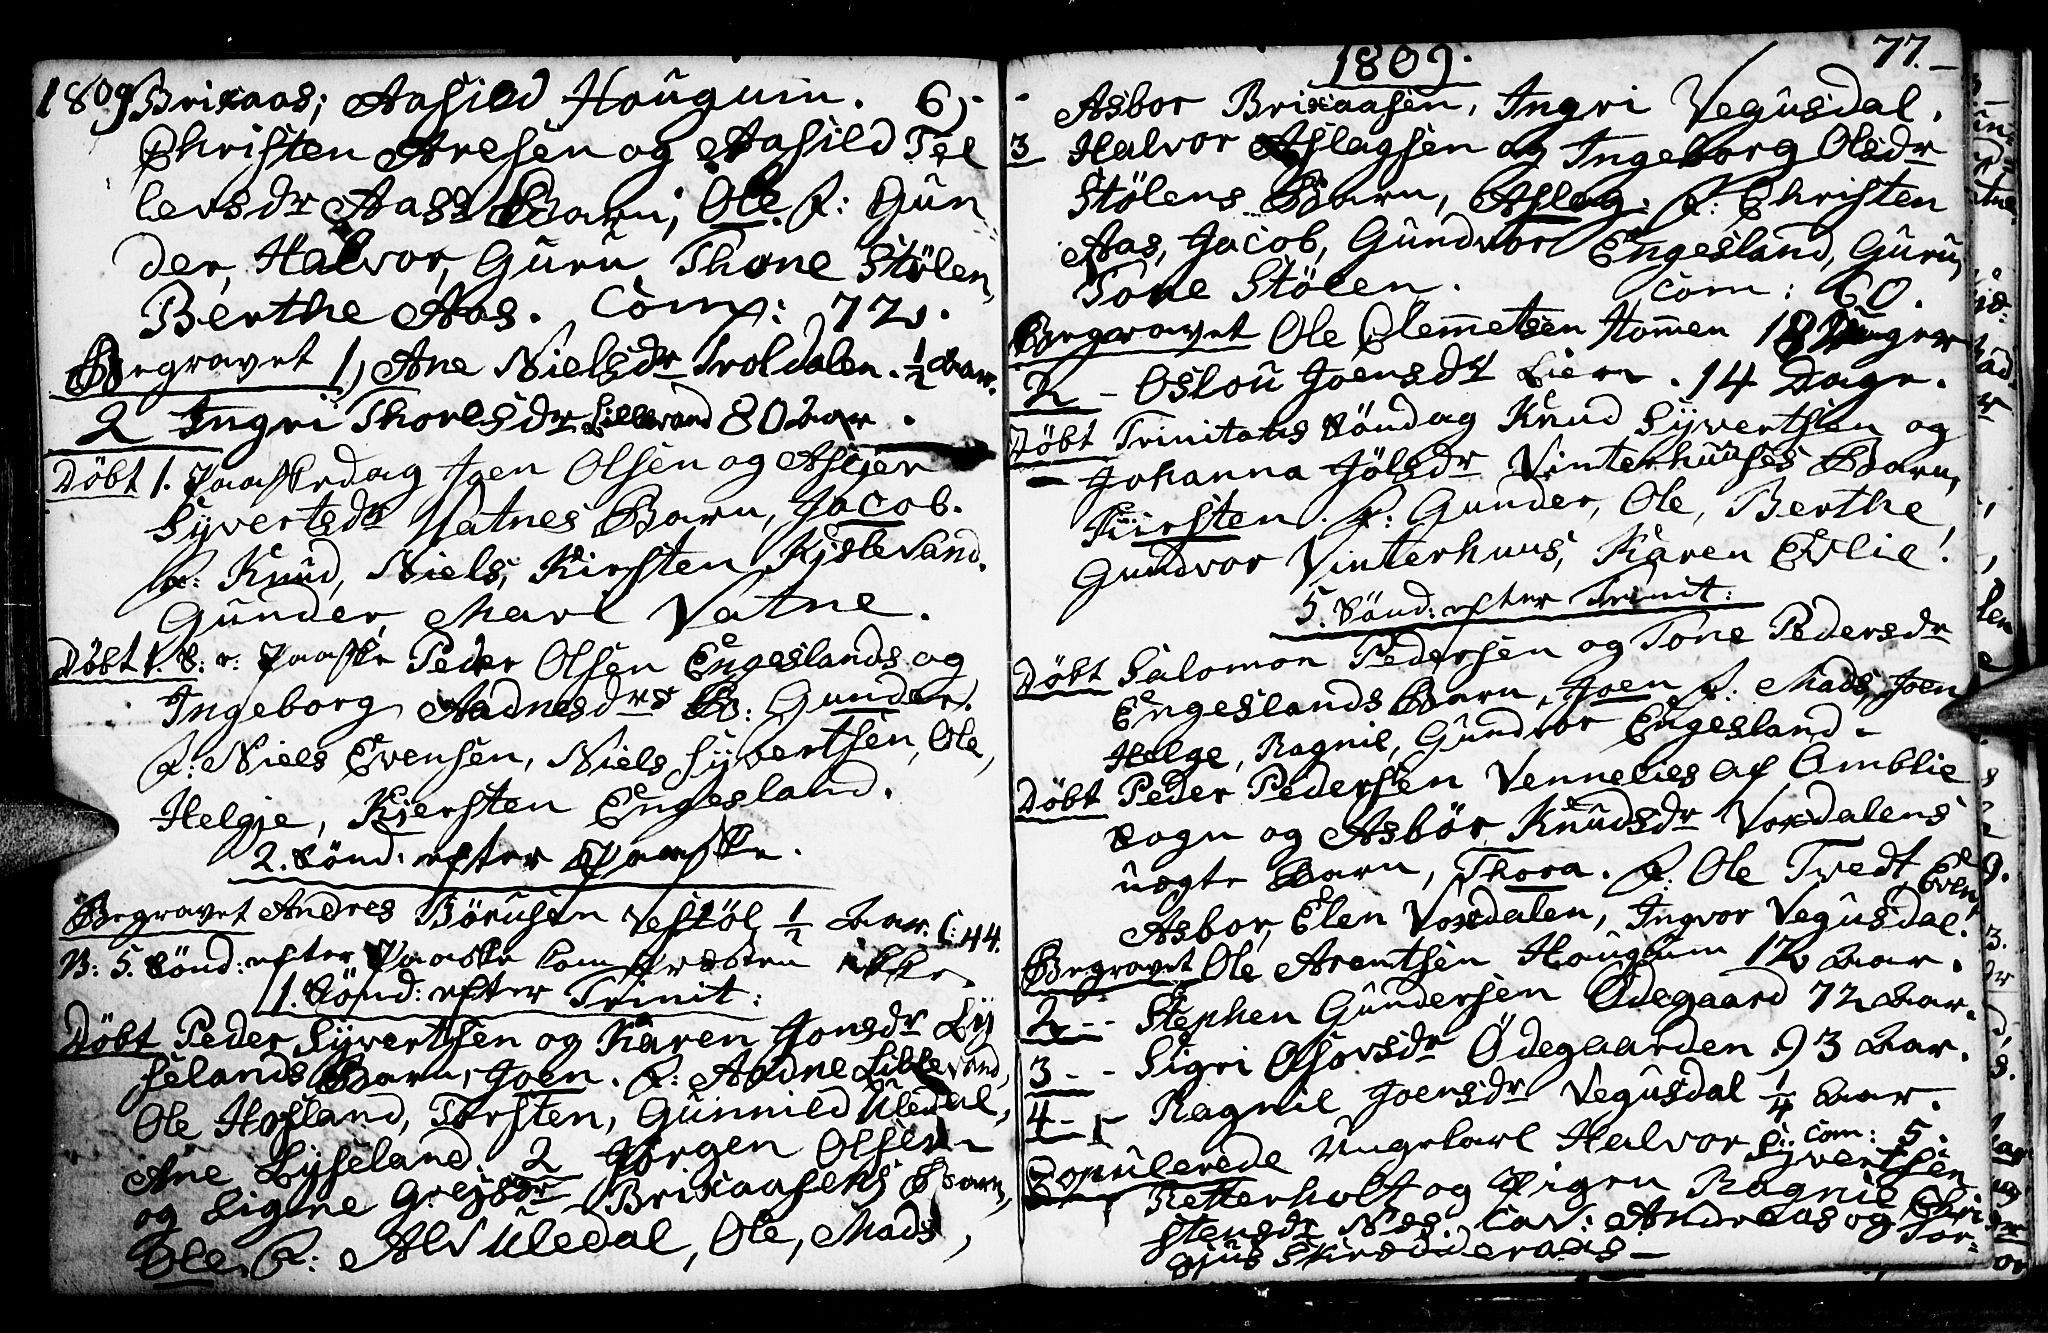 1809 Brixaas; Aasild Hougum. 6,
Christen Aresen og Aasild Tel
levsdr Aass Barn, Ole. F: Gun
der, Halvor, Guru, Thone Stölen,
Berthe Aas. Com: 72.
Begravet 1, Ane Nielsdr Troldalen. ½ Aar.
2 Ingri Thorlsdr Lillevand 80 Aar.
Döbt 1. Paaskedag Joen Olsen og Asgjer
Syvertsdr Vatnes Barn, Jacob.
F: Knud, Niels, Kirsten Kjetevand.
Gunder Mari Vatne.
Döbt 1. S: e: Paaske Peder Olsen Engeslands og
Ingeborg Aadnesdrs B: Gunder.
F: Niels Evensen, Niels Syvertsen, Ole,
Helgje, Kjersten Engesland.
2. Sönd: efter Paaske.
Begravet Andres Börusen Vestöl ½ Aar. C: 44.
N: 5. Sönd: efter Paaske kom Præsten ikke
1. Sönd: efter Trinit:
Döbt Peder Syvertsen og Karen Jonsdr Ly
selands Barn, Joen. F: Aadne Lillevand,
Ole Hofland, Torsten, Gunnild Uledal,
Ane Lyseland. 2 Jörgen Olsen
og Signe Gregsdr Brixaasens Barn,
Ole. F: Alv Uledal, Ole, Mads,
1809. 77.
Asbor Brixaasen, Ingri Vegusdal.
3 Halvor Aslagsen og Ingeborg Olsdr
Stölens Barn, Aslag. F: Christen
Aas, Jacob, Gundvor Engesland, Guru,
Tone Stölen. Com: 60.
Begravet Ole Clemetsen Homen 18 Uger
2 - Oslou Joensdr Lien. 14 Dage.
Döbt Trinitatis Söndag Knud Syvertsen og
Johanna Jölsdr Vinterhuuses Barn,
Kirsten. F: Gunder, Ole, Berthe,
Gundvor Vinterhuus, Karen Evlie.
5. Sönd: efter Trinit:
Döbt Salomon Pedersen og Tone Pedersdr
Engeslands Barn, Joen F: Mads, Joen
Helge, Ragnil, Gundvor Engesland.
Döbt Peder Pedersen Vennelies af Omblie
Sogn og Asbör Knudsdr Voxdalens
uægte Barn, Thora. F: Ole Tvedt, Even,
Asbor, Elen Voxdalen, Ingvor Vegusdal.
Begravet Ole Arentsen Hougum 12 Aar.
2 - - Stephen Gundersen Ödegaard 72 Aar.
3 - - Sigri Osovsdr Ödegaarden 93 Aar.
4 - - Ragnil Joensdr Vegusdal ¼ Aar.
Com: 5.
Copulerede Ungekarl Halvor Syvertsen
Retterholt og Pigen Ragnil Chri
stensdr Næs. Cav: Andreas og Tor-
gjus Skiredideraas